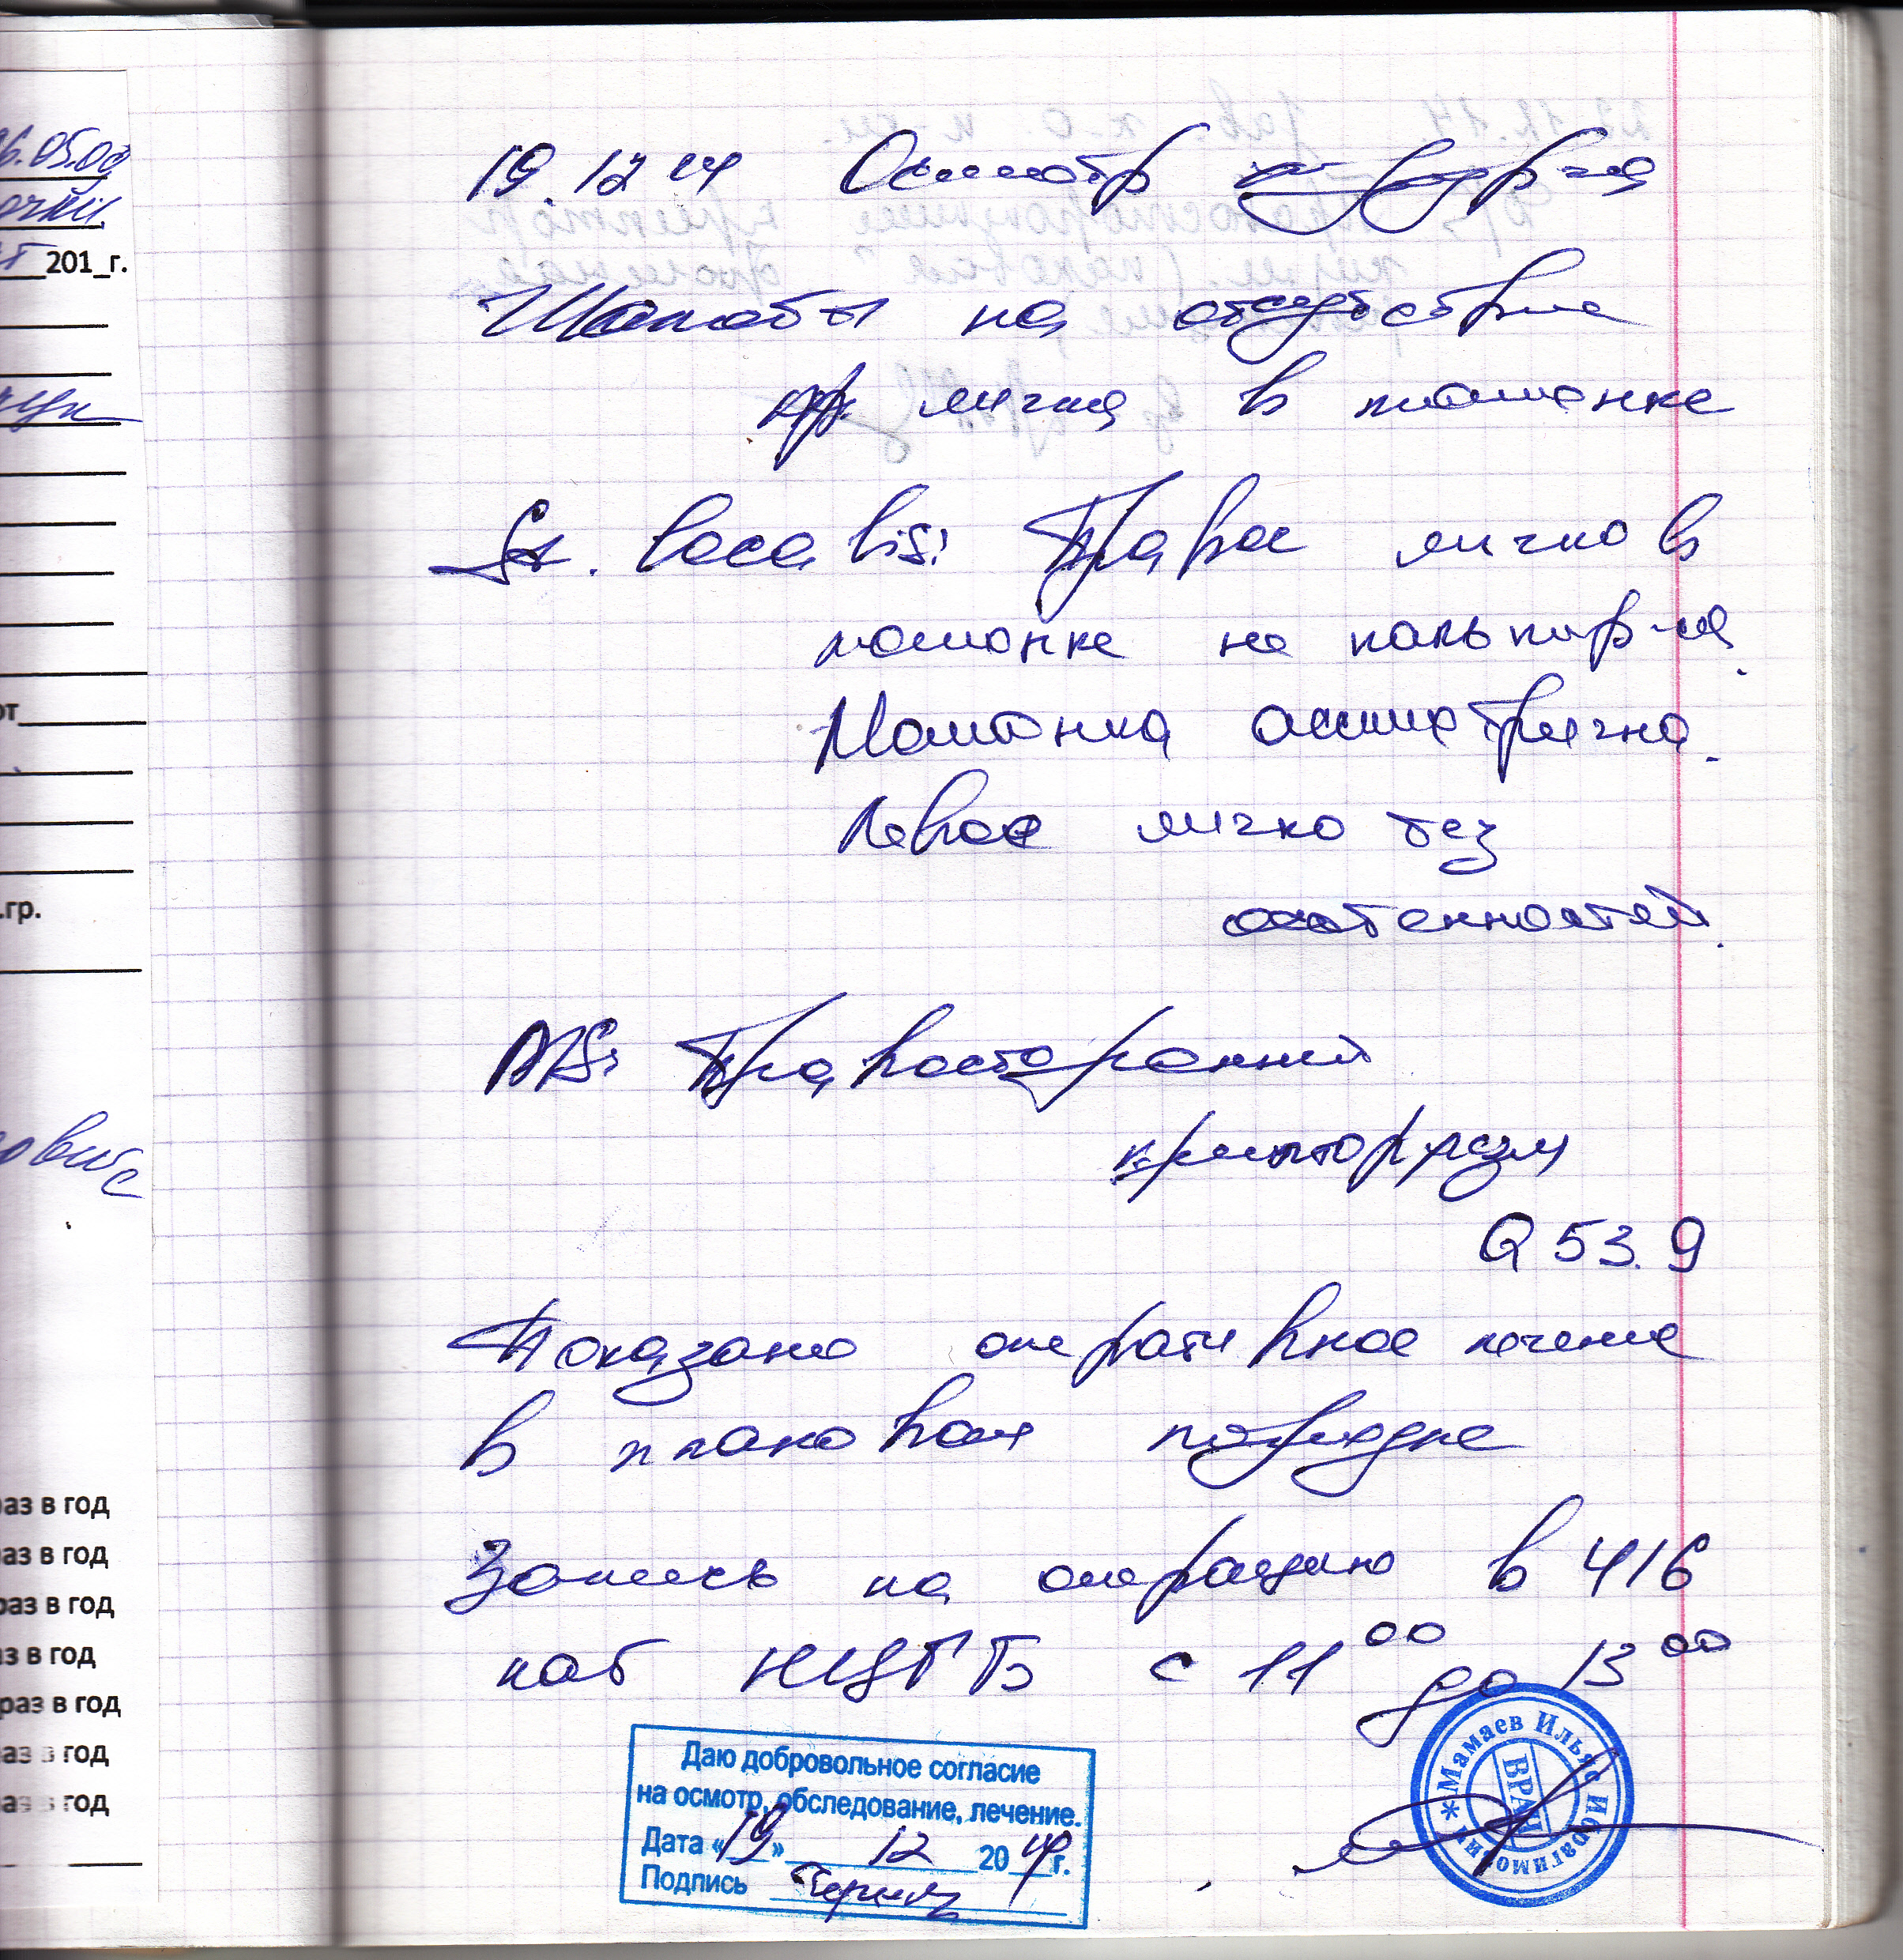 6.05.00
201_г.
от
.гр.
раз в год
раз в год
раз в год
аз в год
раз в год
аз в год
аз в год
19.12 14 Осмотр хирурга
Жалобы на отсутствие
пр. яичка в мошонке
St. localis: Правое яичко в
мошонке не пальпир-ся.
Мошонка ассиметрична.
Левое яичко без
особенностей.
DS: Правосторонний
крипторхизм
Q 53.9
Показано оперативное лечение
в плановом порядке
Запись на операцию в 416
каб НЦГБ с 11 00 до 13 00
Даю добровольное согласие
на осмотр, обследование, лечение.
Дата «19» 12 2014г.
Подпись
Мамаев Ильяс Ибрагимович
ВРАЧ